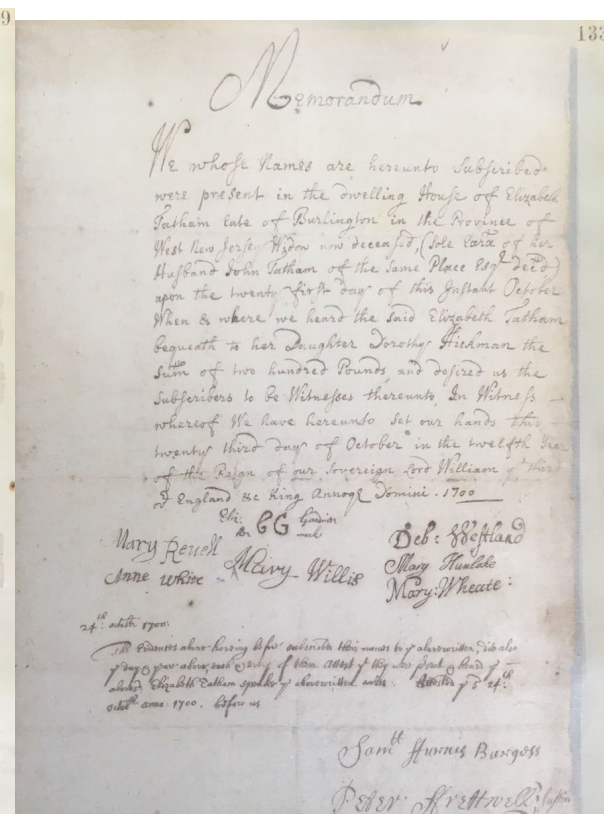 9
133
Memorandum
We whose Names are hereunto Subscribed
were present in the dwelling House of Elizabeth
Tatham late of Burlington in the Province of
West New Jersey Widow now deceased, (Sole of her
Husband John Tatham of the Same Place Esqr decd)
upon the twenty first day of this Instant October
When & where we heard the said Elizabeth Tatham
bequeath to her Daughter Dorothy Hickman the
Sum of two hundred Pounds, and desired us the
Subscribers to be Witnesses thereunto, In Witness
whereof We have hereunto Set our hands this
twenty third day of October in the twelfth Year
of the Reign of our Sovereign Lord William ye third
of England &c King Annoqe Domini. 1700
Eliz: GG Gardiner
mark
Mary Revell
Deb: Westland
Anne White
Mary Willis
Mary Hunlake
Mary: Wheate:
24th: octbr 1700.
The above having before subscribed their names to ye abovewritten, did also
ye day & year above, each & every of them attest yt they were present & heard ye
abovesd Elizabeth Tatham speake ye abovewritten words. Attested ys 24th:
octbr anno: 1700. before us
Samll Burgess
Peter Ffrettwell Justices